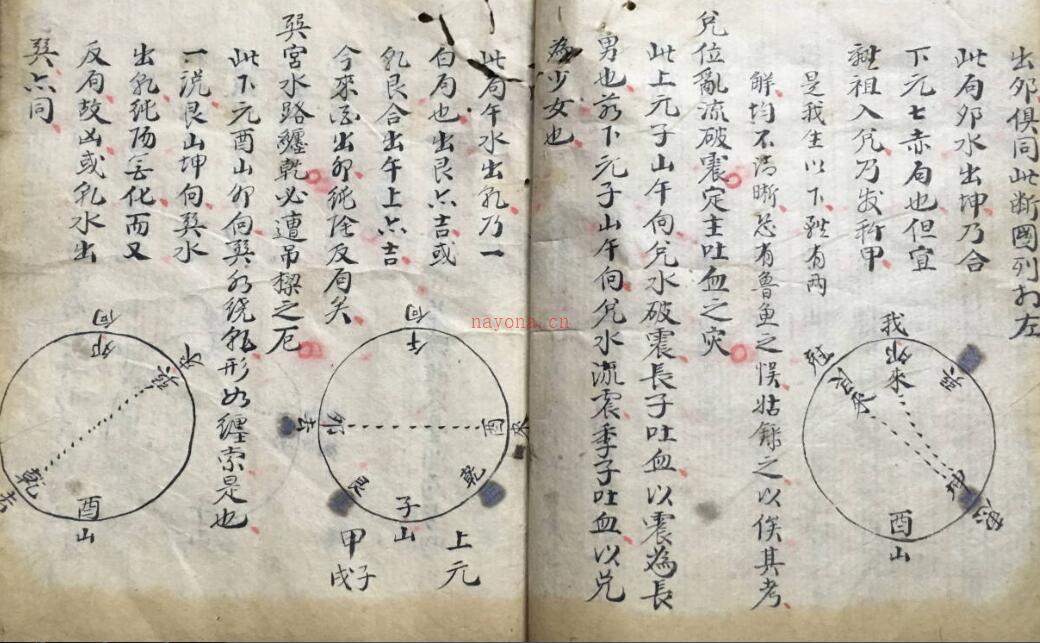 出卯俱同此断圖列于左
此局卯水出坤乃合
下元七赤局也但宜
祖入兌乃发
是我生以下有两
解均不清晰恐有魯魚之悮姑錄之以俟其考
兌位亂流破震定主吐血之灾
此上元子山午向兌水破震長子吐血以震為長
男也若下元子山午向兌水流震季子吐血以兌
為少女也
此局午水出乹乃一
白局也出艮亦吉或
乹艮合出午上亦吉
今來酉出卯純陰反局矣
巽宮水路纏乾必遭吊樑之厄
此下元酉山卯向巽水繞乹形如纏索是也
一说艮山坤向巽水
出乹純陽無化而又
反局故凶或乹水出
巽亦同
我
卯
來
巽
坤
酉
山
午
向
卯
去
酉
來
艮
乾
子
山
上元
甲子
戌
卯
向
巽
來
乾
去
酉
山
nayona.cn